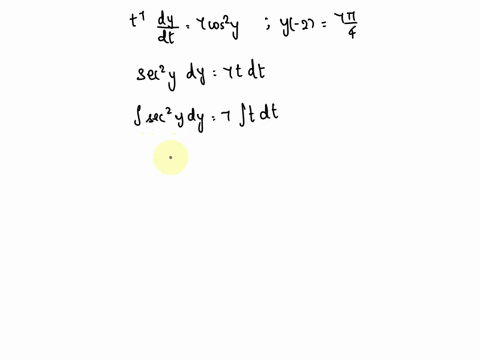 t⁷ dy/dt = 7cos²y ; y(-2) = 7π/4
sec²y dy = 7t dt
∫sec²y dy = 7∫t dt